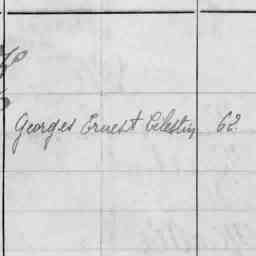 Georges Ernest Célestin 62